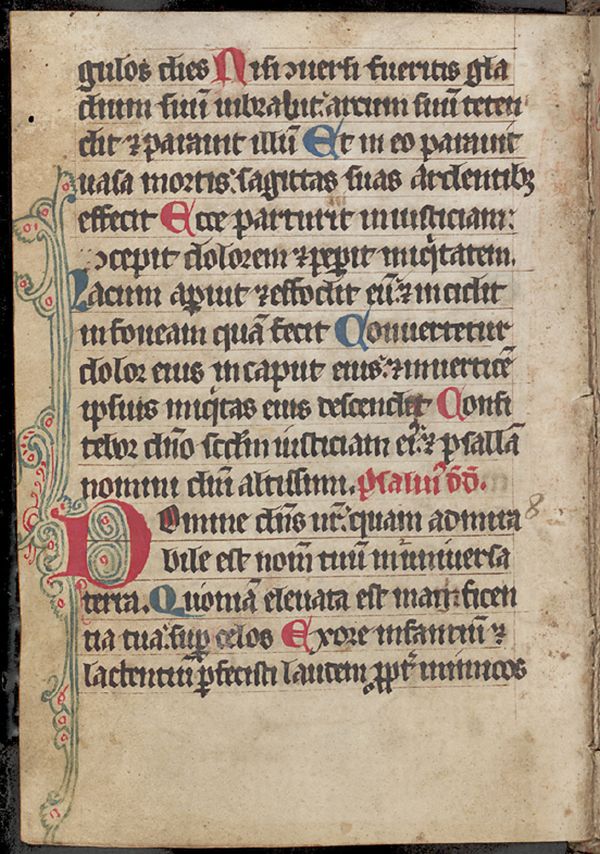 gulos dies Nisi ɔuersi fueritis gla
dium suū uibrabit: arcum suū teten
dit ⁊ parauit illū Et in eo parauit
uasa mortis: sagittas suas ardentibꝫ
effecit Ecce parturit iniusticiam:
ɔcepit dolorem ⁊ peꝑit iniqͥtatem.
Lacum aꝑuit ⁊ effodit eū: ⁊ incidit
in foueam quā fecit Conuertetur
dolor eius in caput eius: ⁊ in uerticē
ipsius iniqͥtas eius descendet Confi
tebor dn̄o scdm iusticiam eiꝰ: ⁊ psallā
nomini dn̄i altissimi. psalmꝰ dd̄.
Domine dn̄s nr̄: quam admira
bile est nom̄ tuū in uniuersa
terra. Quoniā eleuata est magnificen
tia tua: suꝑ celos Ex ore infantiū ⁊
lactentiū ꝑfecisti laudem ꝓpt̄ inimicos
8